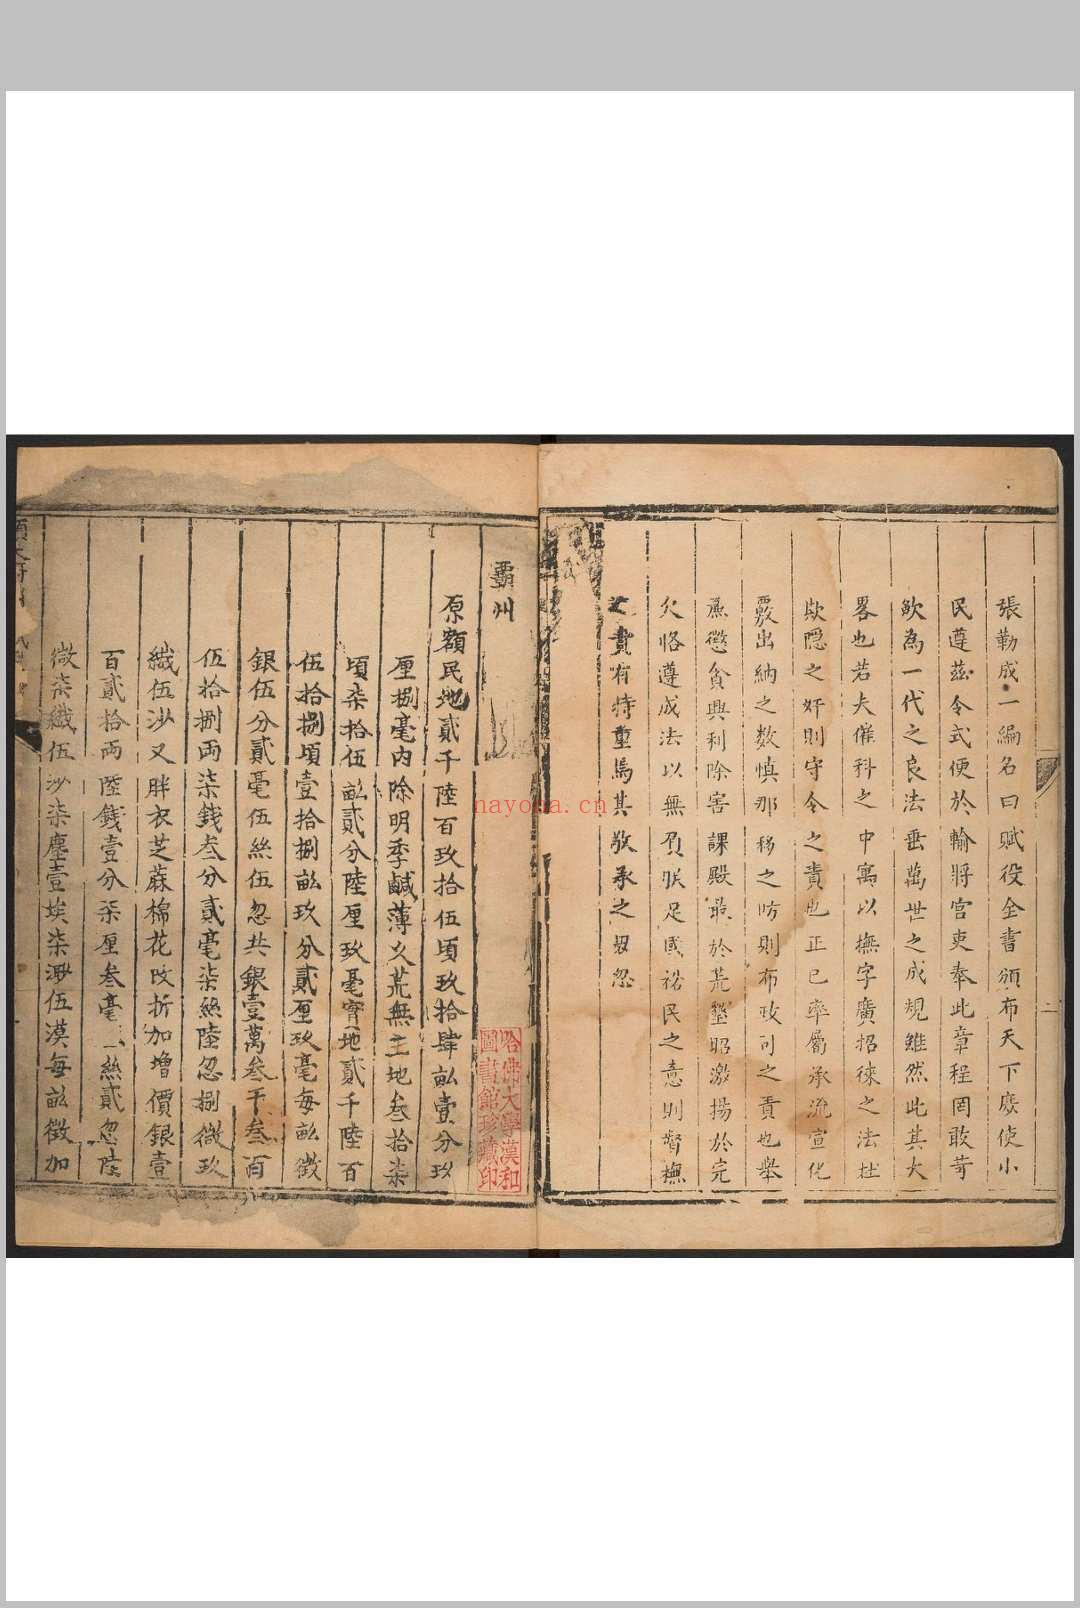 張勒成一編名曰賦役全書頒布天下庶使小
民遵茲令式便於輸將官吏奉此章程罔敢苛
歛為一代之良法垂萬世之成規雖然此其大
畧也若夫催科之中寓以撫字廣招徠之法杜
欺隠之奸則守令之責也正已率屬承流宣化
覈出納之数慎那移之防則布政司之責也舉
㢘懲貪興利除害課殿最於荒墾昭激揚於完
欠恪遵成法以無負朕足國裕民之意則督撫
之責有特重焉其敬承之毋忽
霸州
原額民地貳千陸百玖拾伍頃玖拾肆畝壹分玖
厘捌毫内除明季鹹薄久荒無主地叁拾柒
頃柒拾伍畝貳分陸厘玖毫實地貳千陸百
伍拾捌頃壹拾捌畝玖分貳厘玖毫每畝徵
銀伍分貳毫伍絲伍忽共銀壹萬叁千叁百
伍拾捌両柒錢叁分貳毫柒絲陸忽捌微玖
纎伍沙又胖衣芝蔴棉花改折加增價銀壹
百貳拾両陸錢壹分柒厘叁毫一絲貳忽陸
微柒纎伍沙柒塵壹埃柒渺伍漠每畝徵加
哈佛大學漢和
圖書館珍藏印
二
nayona.cn